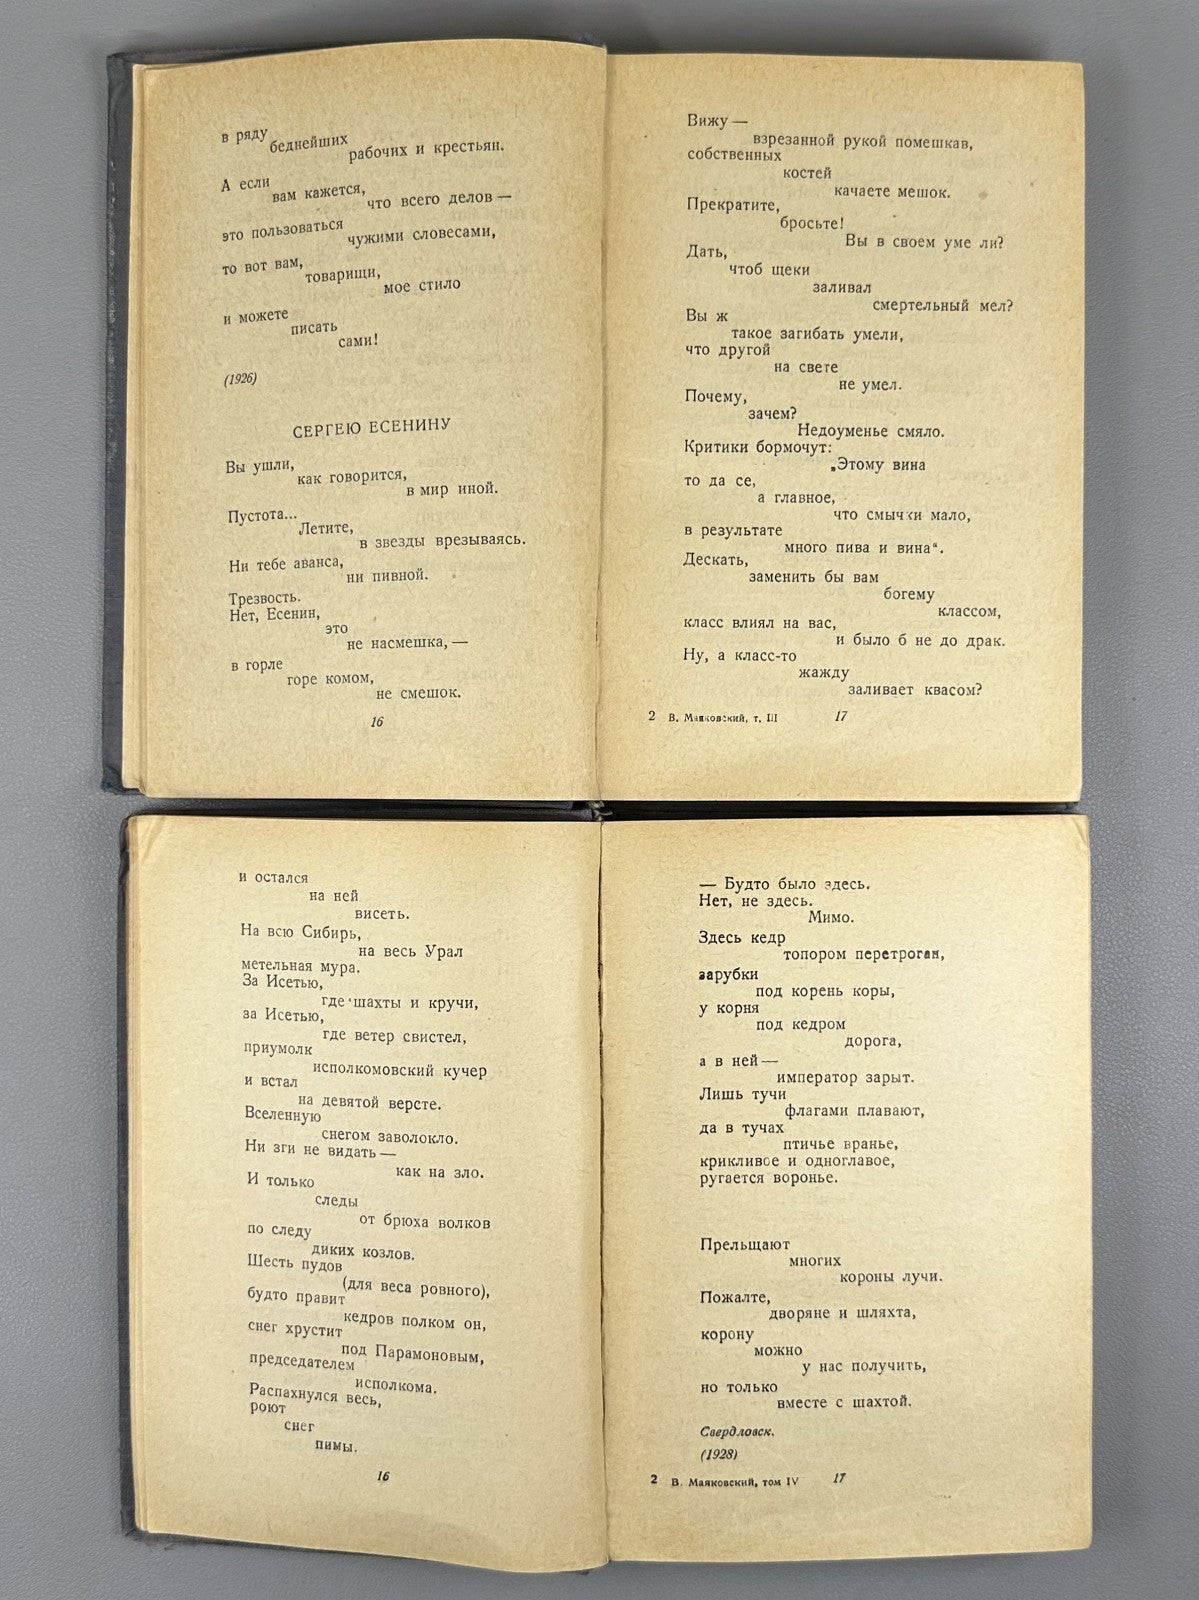 в ряду
беднейших
рабочих и крестьян.
А если
вам кажется,
что всего делов —
это пользоваться
чужими словесами,
то вот вам,
товарищи,
мое стило
и можете
писать
сами!
(1926)
СЕРГЕЮ ЕСЕНИНУ
Вы ушли,
как говорится,
в мир иной.
Пустота...
Летите,
в звезды врезываясь.
Ни тебе аванса,
ни пивной.
Трезвость.
Нет, Есенин,
это
не насмешка, —
в горле
горе комом,
не смешок.
16
Вижу —
взрезанной рукой помешкав,
собственных
костей
качаете мешок.
Прекратите,
бросьте!
Вы в своем уме ли?
Дать,
чтоб щеки
заливал
смертельный мел?
Вы ж
такое загибать умели,
что другой
на свете
не умел.
Почему,
зачем?
Недоуменье смяло.
Критики бормочут:
„Этому вина
то да се,
а главное,
что смычки мало,
в результате
много пива и вина“.
Дескать,
заменить бы вам
богему
классом,
класс влиял на вас,
и было б не до драк.
Ну, а класс-то
жажду
заливает квасом?
2 В. Маяковский, т. III 17
и остался
на ней
висеть.
На всю Сибирь,
на весь Урал
метельная мура.
За Исетью,
где шахты и кручи,
за Исетью,
где ветер свистел,
приумолк
исполкомовский кучер
и встал
на девятой версте.
Вселенную
снегом заволокло.
Ни зги не видать —
как на зло.
И только
следы
от брюха волков
по следу
диких козлов.
Шесть пудов
(для веса ровного),
будто правит
кедров полком он,
снег хрустит
под Парамоновым,
председателем
исполкома.
Распахнулся весь,
роют
снег
пимы.
16
— Будто было здесь.
Нет, не здесь.
Мимо.
Здесь кедр
топором перетроган,
зарубки
под корень коры,
у корня
под кедром
дорога,
а в ней —
император зарыт.
Лишь тучи
флагами плавают,
да в тучах
птичье вранье,
крикливое и одноглавое,
ругается воронье.
Прельщают
многих
короны лучи.
Пожалте,
дворяне и шляхта,
корону
можно
у нас получить,
но только
вместе с шахтой.
Свердловск.
(1928)
2 В. Маяковский, том IV 17